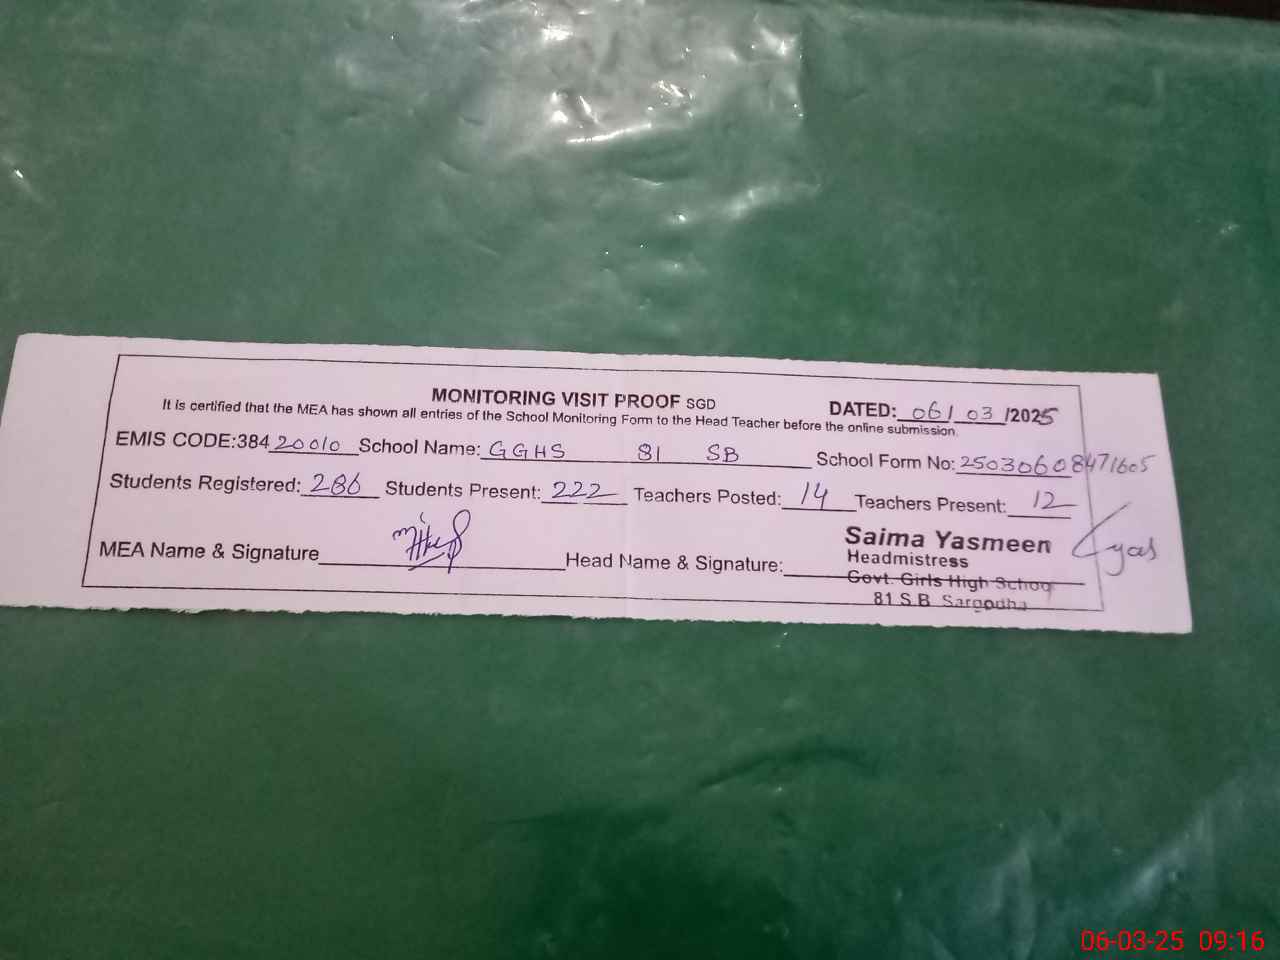 MONITORING VISIT PROOF SGD
DATED: 06/03/2025
It is certified that the MEA has shown all entries of the School Monitoring Form to the Head Teacher before the online submission.
EMIS CODE:38420010 School Name: GGHS 81 SB School Form No: 25030608471605
Students Registered: 286 Students Present: 222 Teachers Posted: 14 Teachers Present: 12
MEA Name & Signature Head Name & Signature:
Saima Yasmeen
Headmistress
Govt. Girls High School
81 S.B Sargodha
06-03-25 09:16